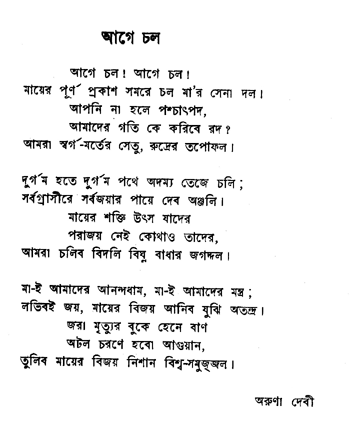 আগে চল
আগে চল! আগে চল!
মায়ের পূর্ণ প্রকাশ সমরে চল মা'র সেনা দল।
আপনি না হলে পশ্চাৎপদ,
আমাদের গতি কে করিবে রদ?
আমরা স্বর্গ-মর্তের সেতু, রুদ্রের তপোফল।
দুর্গম হতে দুর্গম পথে অদম্য তেজে চলি;
সর্বগ্রাসীরে সর্বজয়ার পায়ে দেব অঞ্জলি।
মায়ের শক্তি উৎস যাদের
পরাজয় নেই কোথাও তাদের,
আমরা চলিব বিদলি বিঘ্ন বাধার জগদ্দল।
মা-ই আমাদের আনন্দধাম, মা-ই আমাদের মন্ত্র;
লভিবই জয়, মায়ের বিজয় আনিব যুঝি অতন্দ্র।
জরা মৃত্যুর বুকে হেনে বাণ
অটল চরণে হবো আগুয়ান,
তুলিব মায়ের বিজয় নিশান বিশ্ব-সমুজ্জল।
অরুণা দেবী